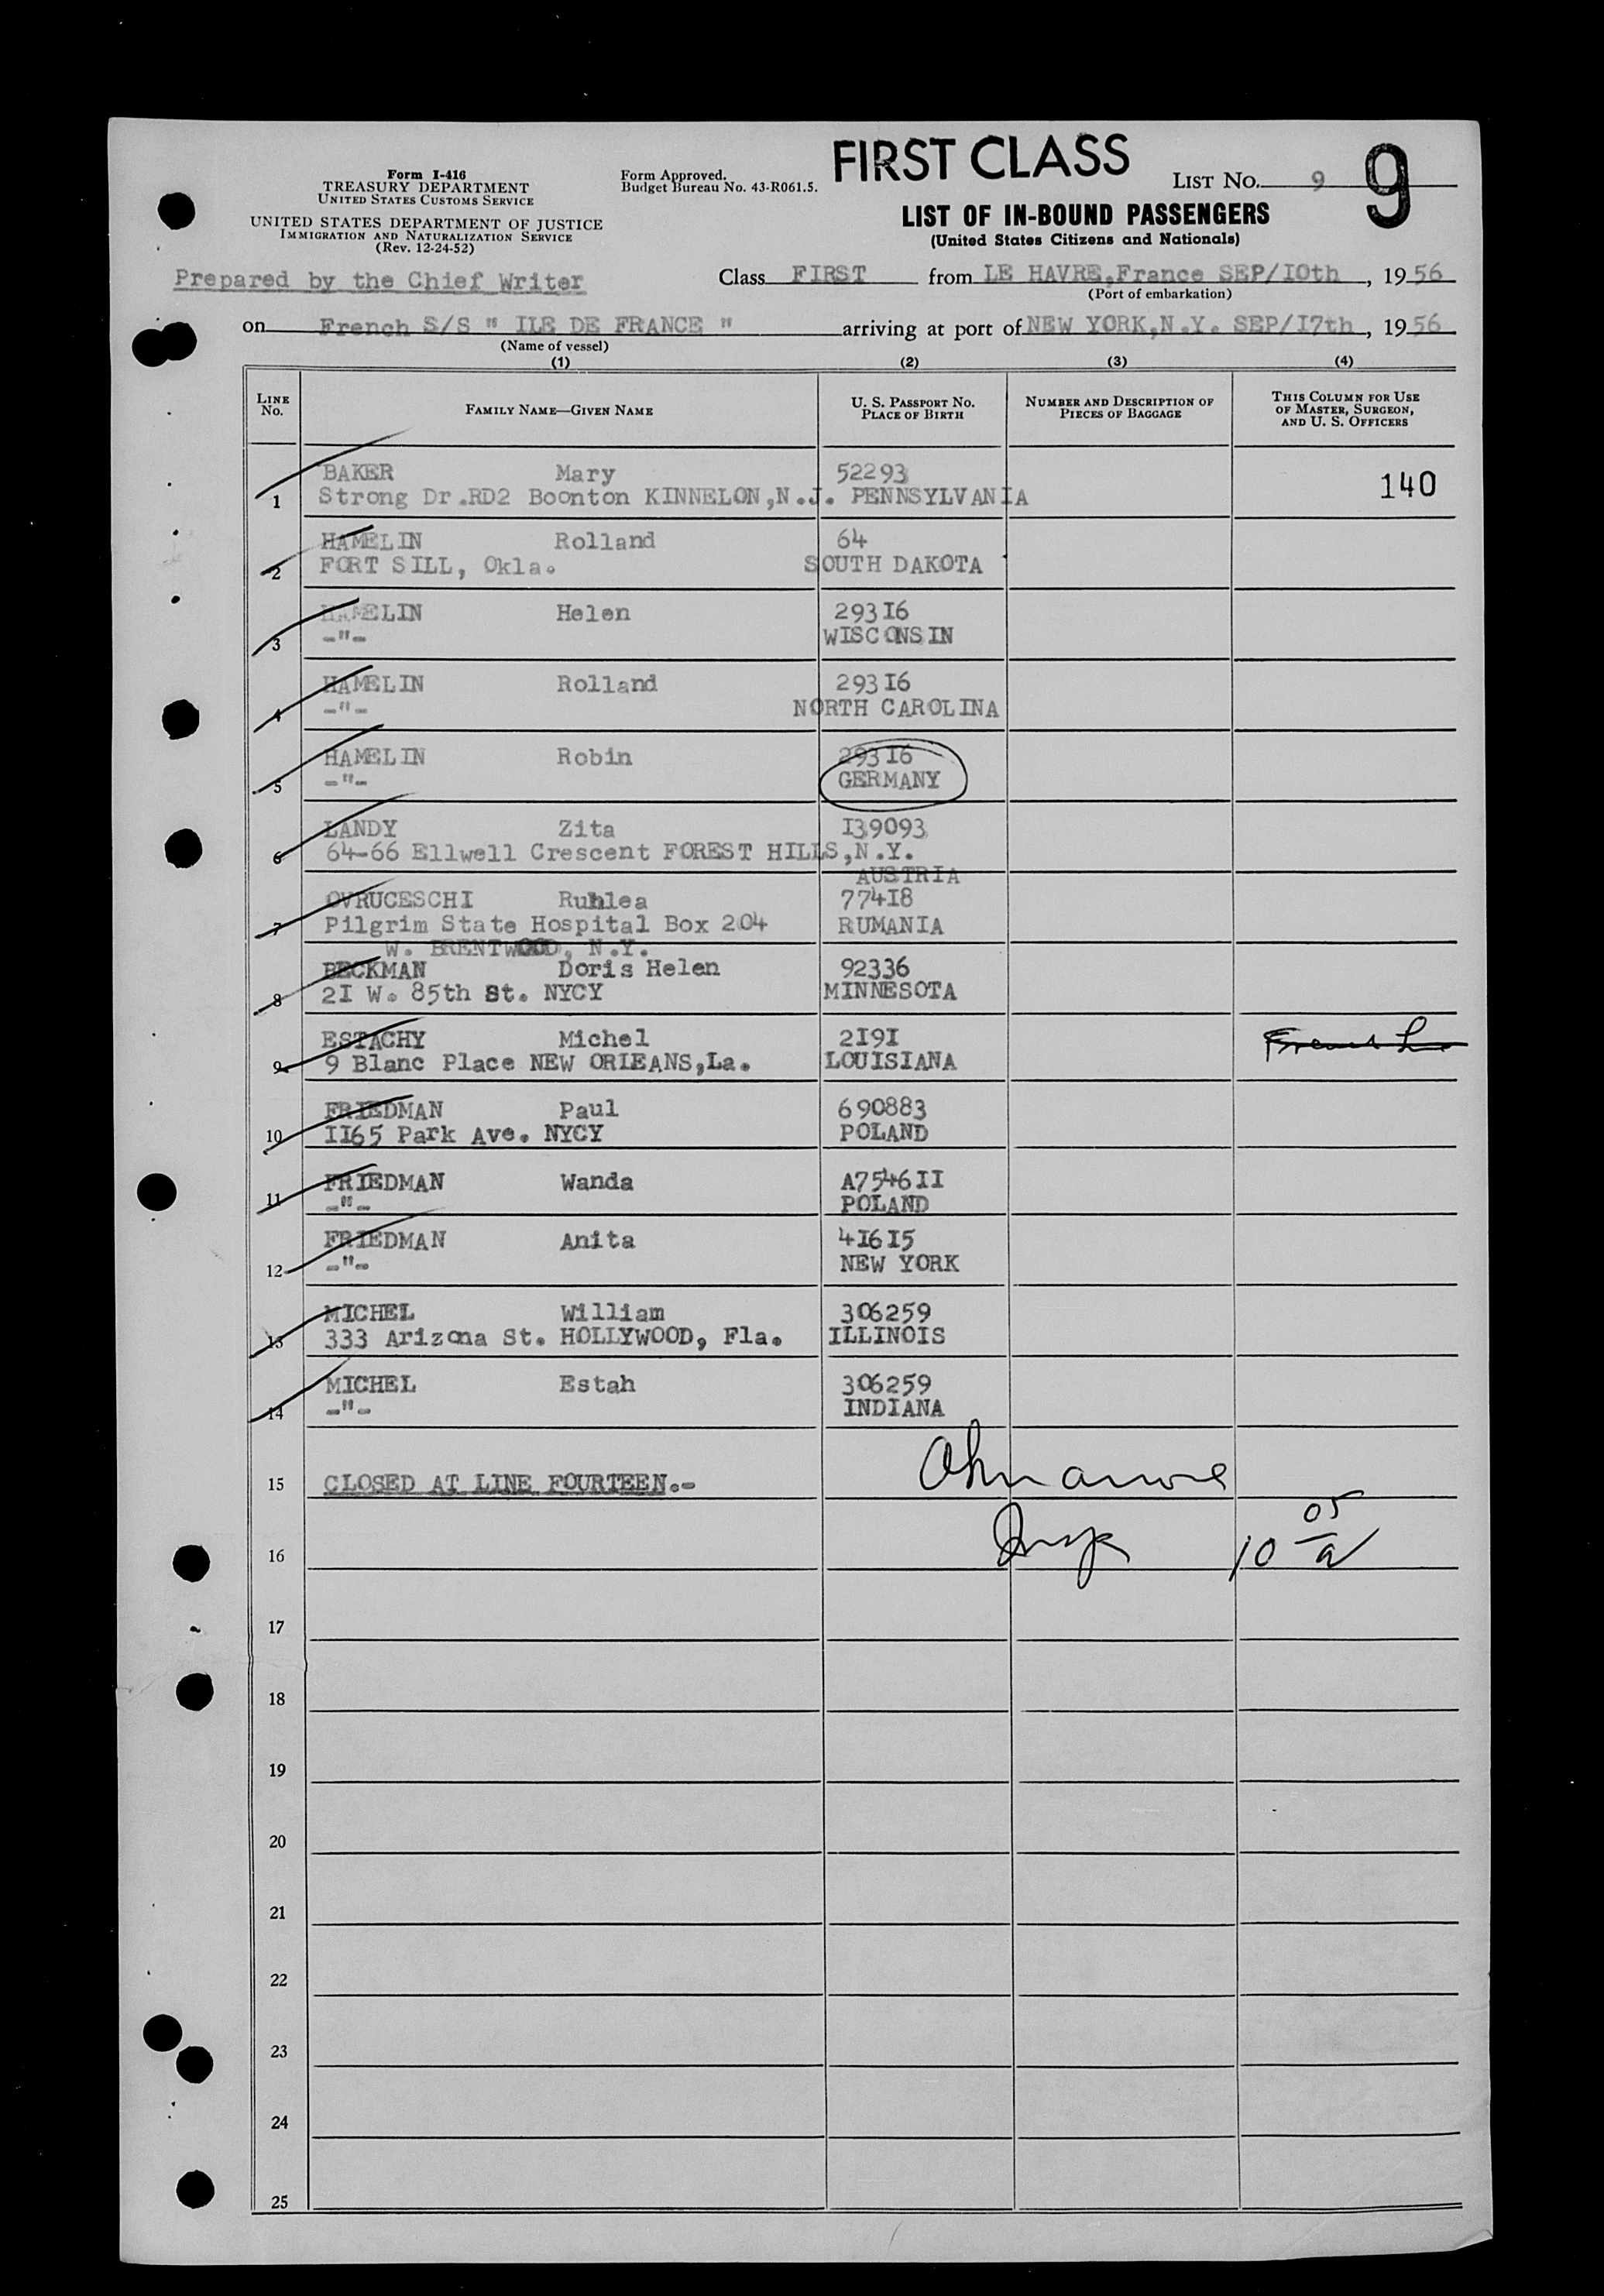 FIRST CLASS
Form I-416
TREASURY DEPARTMENT
UNITED STATES CUSTOMS SERVICE
UNITED STATES DEPARTMENT OF JUSTICE
IMMIGRATION AND NATURALIZATION SERVICE
(Rev. 12-24-52)
Form Approved.
Budget Bureau No. 43-R061.5.
LIST NO. 9 9
LIST OF IN-BOUND PASSENGERS
(United States Citizens and Nationals)
Prepared by the Chief Writer
Class FIRST from LE HAVRE,France SEP/IOth , 19 56
(Port of embarkation)
on French S/S " ILE DE FRANCE " arriving at port of NEW YORK,N.Y. SEP/I7th , 19 56
(Name of vessel)
(1) (2) (3) (4)
LINE No. FAMILY NAME—GIVEN NAME U. S. PASSPORT NO. PLACE OF BIRTH NUMBER AND DESCRIPTION OF PIECES OF BAGGAGE THIS COLUMN FOR USE OF MASTER, SURGEON, AND U. S. OFFICERS
BAKER Mary 52293
1 Strong Dr.RD2 Boonton KINNELON,N.J. PENNSYLVANIA 140
HAMELIN Rolland 64
2 FORT SILL, Okla. SOUTH DAKOTA
HAMELIN Helen 293I6
3 -"- WISCONSIN
HAMELIN Rolland 293I6
4 -"- NORTH CAROLINA
HAMELIN Robin 293I6
5 -"- GERMANY
LANDY Zita I39093
6 64-66 Ellwell Crescent FOREST HILLS,N.Y.
AUSTRIA
OVRUCESCHI Ruhlea 774I8
7 Pilgrim State Hospital Box 204 RUMANIA
W. BRENTWOOD, N.Y.
BECKMAN Doris Helen 92336
8 2I W. 85th St. NYCY MINNESOTA
ESTACHY Michel 2I9I
9 9 Blanc Place NEW ORLEANS,La. LOUISIANA
FRIEDMAN Paul 690883
10 II65 Park Ave. NYCY POLAND
FRIEDMAN Wanda A7546II
11 -"- POLAND
FRIEDMAN Anita 4I6I5
12 -"- NEW YORK
MICHEL William 306259
13 333 Arizona St. HOLLYWOOD, Fla. ILLINOIS
MICHEL Estah 306259
14 -"- INDIANA
15 CLOSED AT LINE FOURTEEN.-
16 Insp 10 05 a
17
18
19
20
21
22
23
24
25